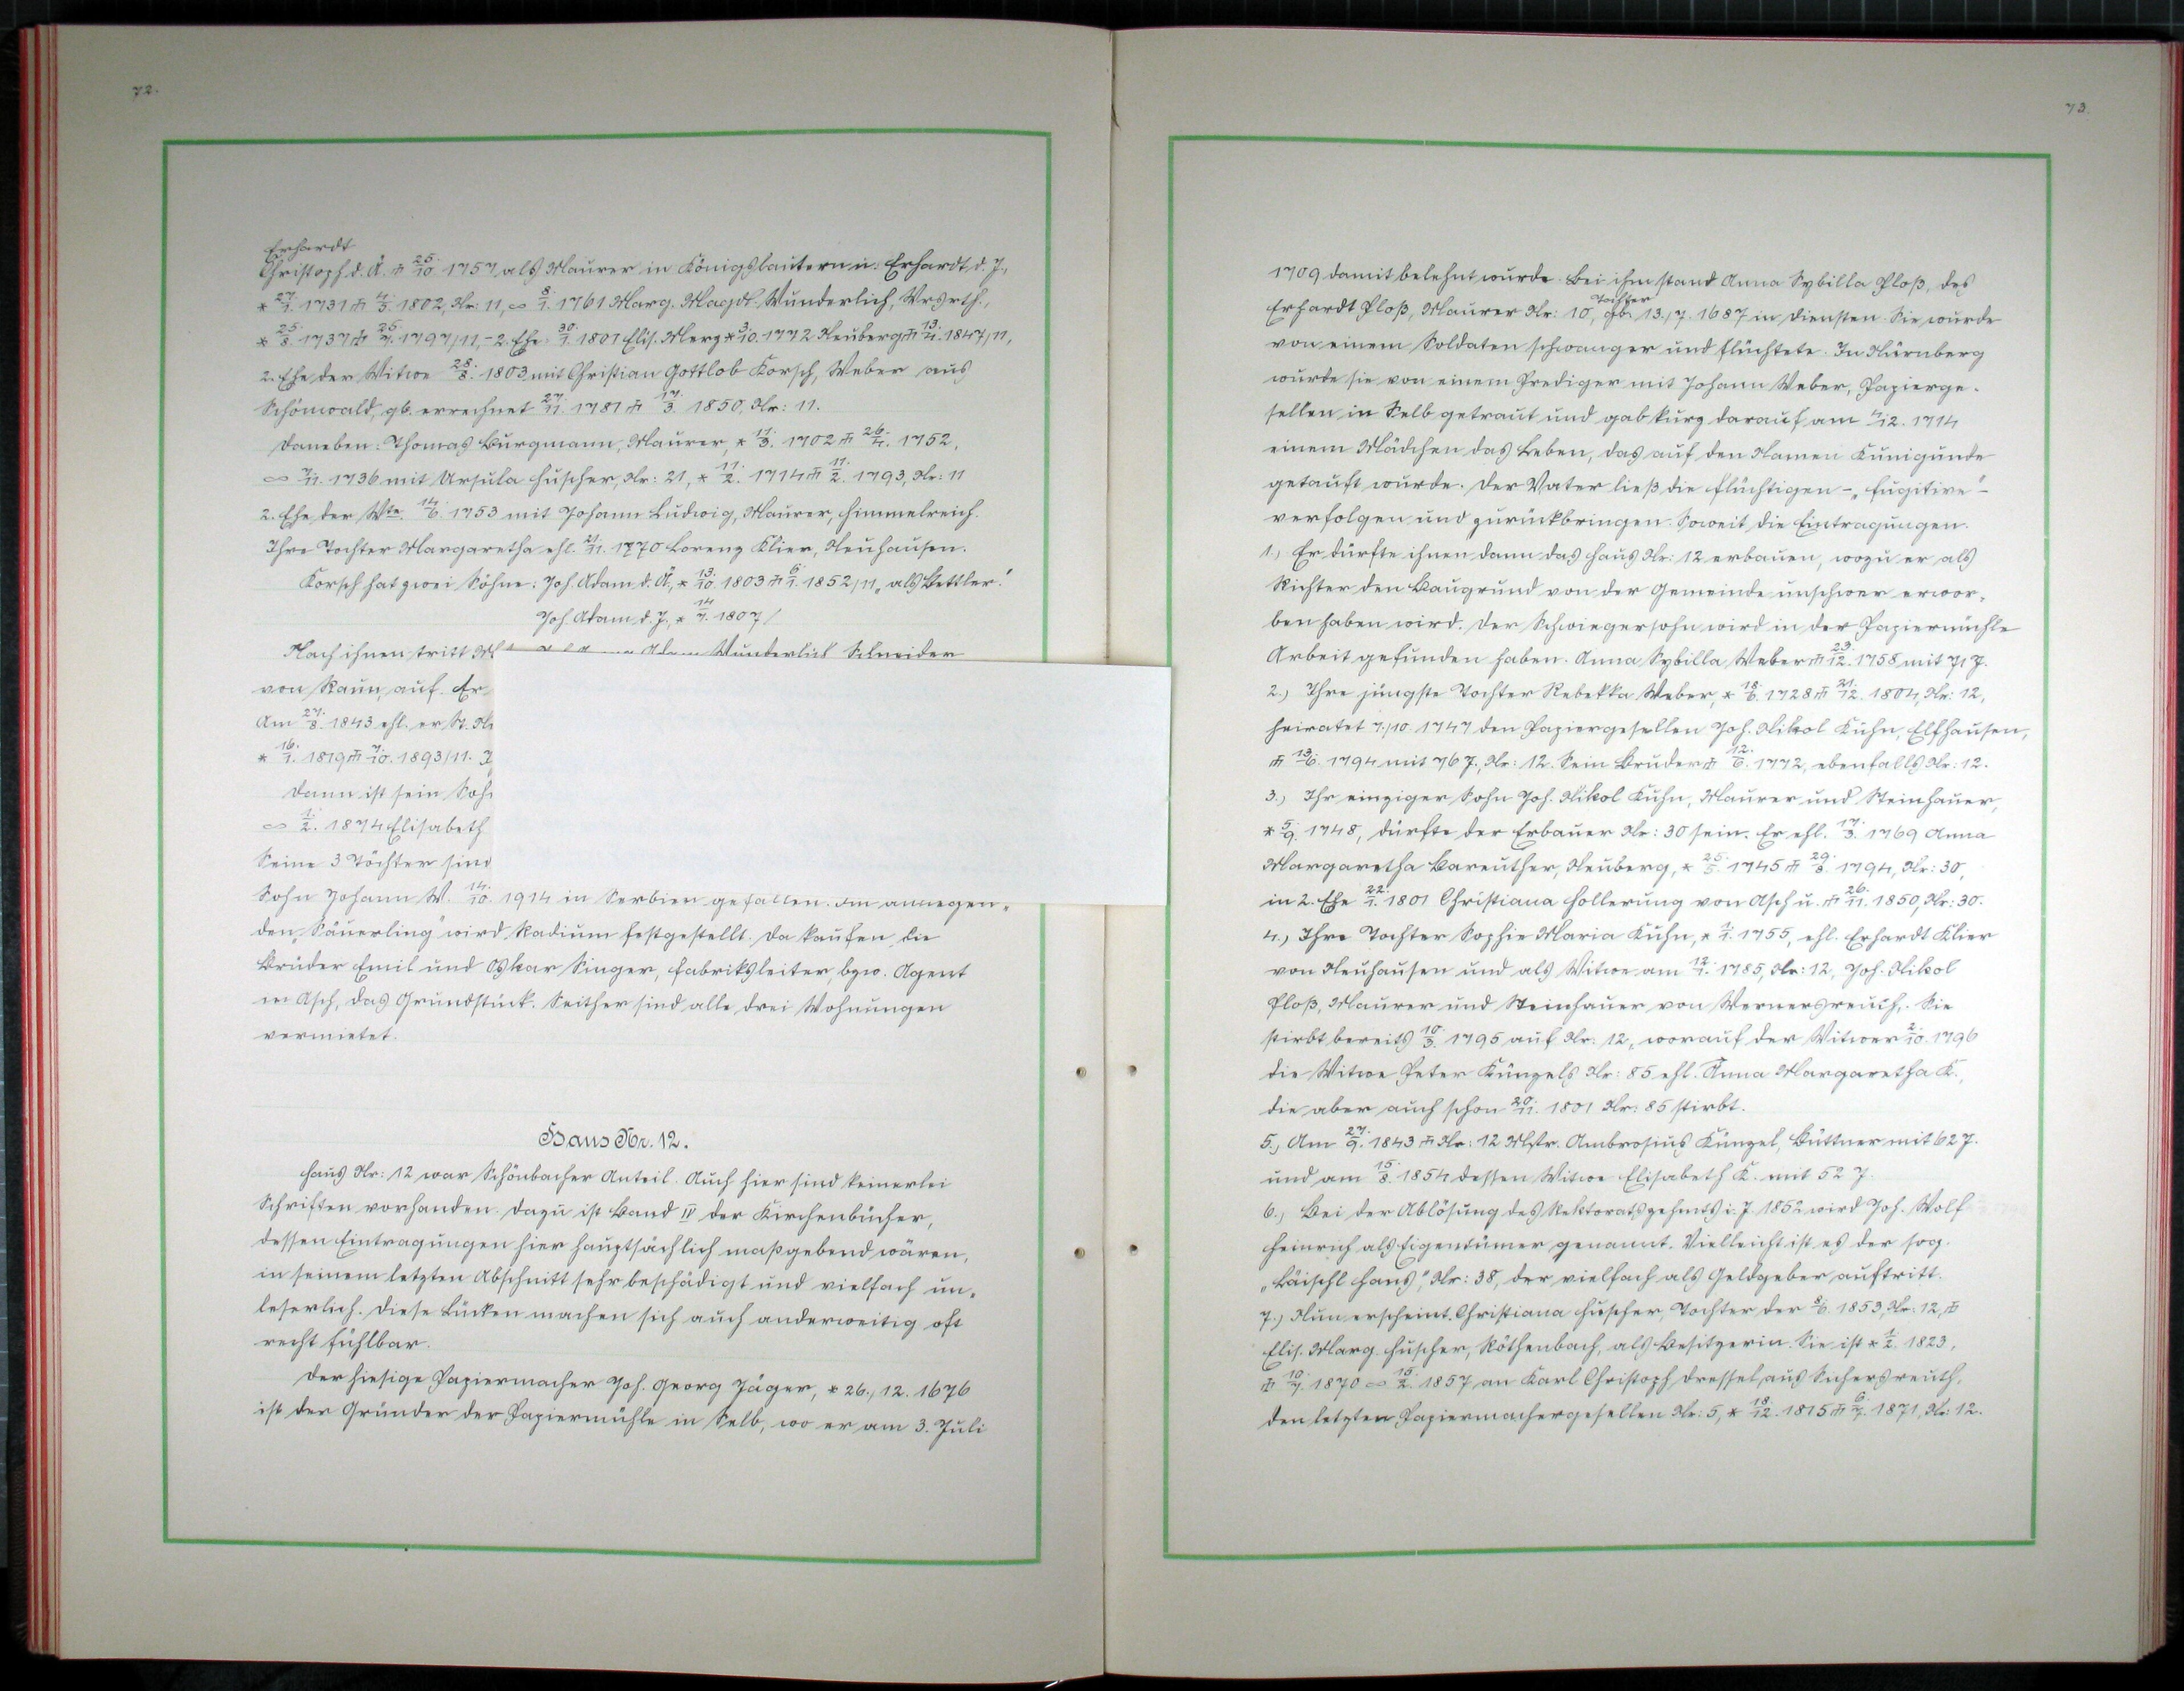 72.
Erhardt
Christoph d. Ä. ⚰ 25./10. 1757 als Maurer in Königslautern u. Erhardt d. J.,
* 27./1. 1731 ⚰ 4./3. 1802, Nr: 11, ∞ 8./1. 1761 Marg. Magdl. Wunderlich, Wrsrth.,
* 25./8. 1737 ⚰ 25./7. 1797/11, - 2. Ehe: 30./1. 1801 Elis. Merz * 3./10. 1772 Neuberg ⚰ 13./4. 1847/11,
2. Ehe der Witwe 28./8. 1803 mit Christian Gottlob Korsch, Weber aus
Schönwald, gb. errechnet 27./11. 1781 ⚰ 17./3. 1850, Nr: 11.
Daneben: Thomas Burgmann, Maurer, * 11./3. 1702 ⚰ 26./4. 1752,
∞ 7./11. 1736 mit Ursula Huscher, Nr: 21, * 11./2. 1714 ⚰ 11./2. 1793, Nr: 11
2. Ehe der Wte. 14./6. 1753 mit Johann Ludwig, Maurer, Himmelreich.
Ihre Tochter Margaretha ehl. 21./11. 1770 Lorenz Klier, Neuhausen.
Korsch hat zwei Söhne: Joh. Adam d. Ä., * 13./10. 1803 ⚰ 6./1. 1852/11 „als Bettler."
Joh. Adam d. J., * 14./7. 1807/
Nach ihnen tritt Adam Wunderlich Schneider
von Raun, auf. Er
Am 27./8. 1843 ehl. er
* 16./1. 1819 ⚰ 7./10. 1893/11.
Dann ist sein
∞ 1./2. 1874 Elisabeth
Seine 3 Töchter sind
Sohn Johann W. 14./10. 1914 in Serbien gefallen. Im anliegen-
den „Säuerling" wird Radium festgestellt. Da kaufen die
Brüder Emil und Oskar Singer, Fabriksleiter, bzw. Agent
in Asch, das Grundstück. Seither sind alle drei Wohnungen
vermietet.
Haus Nr. 12.
Haus Nr: 12 war Schönbacher Anteil. Auch hier sind keinerlei
Schriften vorhanden. Dazu ist Band IV der Kirchenbücher,
dessen Eintragungen hier hauptsächlich maßgebend wären,
in seinem letzten Abschnitt sehr beschädigt und vielfach un-
leserlich. Diese Lücken machen sich auch anderweitig oft
recht fühlbar.
Der hiesige Papiermacher Joh. Georg Jäger, * 26./12. 1676
ist der Gründer der Papiermühle in Selb, wo er am 3. Juli
73.
1709 damit belehnt wurde. Bei ihm stand Anna Sybilla Ploß, des
Erhardt Ploß, Maurer Nr: 10, Tochter gb. 13./7. 1687 in Diensten. Sie wurde
von einem Soldaten schwanger und flüchtete. In Nürnberg
wurde sie von einem Prediger mit Johann Weber, Papierge-
sellen in Selb getraut und gab kurz darauf am 4/12. 1714
einem Mädchen das Leben, das auf den Namen Kunigunde
getauft wurde. Der Vater ließ die Flüchtigen - „fugitive" -
verfolgen und zurückbringen. Soweit die Eintragungen.
1.) Er dürfte ihnen dann das Haus Nr: 12 erbauen, wozu er als
Richter den Baugrund von der Gemeinde unschwer erwor-
ben haben wird. Der Schwiegersohn wird in der Papiermühle
Arbeit gefunden haben. Anna Sybilla Weber ⚰ 23./12. 1758 mit 71 J.
2.) Ihre jüngste Tochter Rebekka Weber, * 18./6. 1728 ⚰ 21./12. 1804, Nr: 12,
heiratet 7./10. 1747 den Papiergesellen Joh. Nikol Kuhn, Elfhausen,
⚰ 13./6. 1794 mit 76 J., Nr: 12. Sein Bruder ⚰ 12./6. 1772, ebenfalls Nr: 12.
3.) Ihr einziger Sohn Joh. Nikol Kuhn, Maurer und Steinhauer,
* 5./9. 1748, dürfte der Erbauer Nr: 30 sein. Er ehl. 17./3. 1769 Anna
Margaretha Bareuther, Neuberg, * 25./5. 1745 ⚰ 29./8. 1794, Nr: 30,
in 2. Ehe 22./1. 1801 Christiana Hollerung von Asch u. ⚰ 26./11. 1850, Nr: 30.
4.) Ihre Tochter Sophie Maria Kuhn, * 1./1. 1755, ehl. Erhardt Klier
von Neuhausen und als Witwe am 12./7. 1785, Nr: 12, Joh. Nikol
Ploß, Maurer und Steinhauer von Wernersreuth. Sie
stirbt bereits 10./3. 1795 auf Nr: 12, worauf der Witwer 2./10. 1796
die Witwe Peter Künzels Nr: 85 ehl. Anna Margaretha K.,
die aber auch schon 20./11. 1801 Nr: 85 stirbt.
5.) Am 27./9. 1843 ⚰ Nr: 12 Mstr. Ambrosius Künzel, Büttner mit 62 J.
und am 15./8. 1854 dessen Witwe Elisabeth K. mit 52 J.
6.) Bei der Ablösung des Rektoratszehents i. J. 1852 wird Joh. Wolf
Heinrich als Eigentümer genannt. Vielleicht ist es der sog.
„Läischl Hans", Nr: 38, der vielfach als Geldgeber auftritt.
7.) Nun erscheint Christiana Huscher, Tochter der 8./6. 1853, Nr: 12, ⚰
Elis. Marg. Huscher, Röthenbach, als Besitzerin. Sie ist * 1./2. 1823,
⚰ 10./7. 1870 ∞ 15./2. 1857 an Karl Christoph Dressel, aus Sichersreuth,
den letzten Papiermachergesellen Nr: 5, * 18./12. 1815 ⚰ 6./7. 1871, Nr: 12.